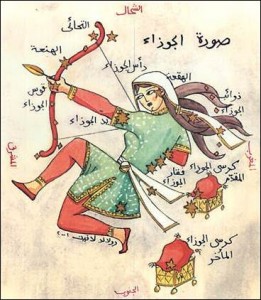 الشمال
صورة الجوزاء
التحائي
الهنعة
رأس الجوزاء
الهقعة
ذوائب
الجوزاء
قوس
الجوزاء
يد الجوزاء
للشرق
المغرب
كرسي الجوزاء
المقدّم
فقار
الجوزاء
كرسي الجوزاء
المأخر
الجنوب